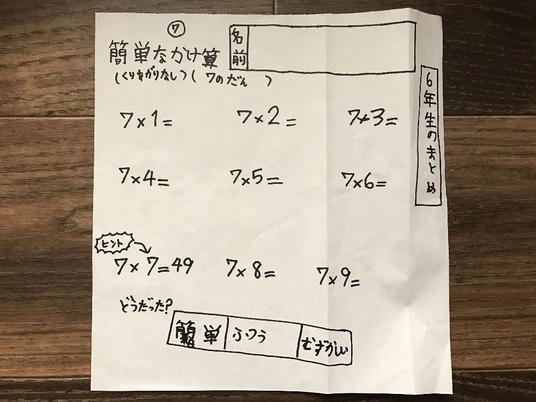 ⑦
簡単なかけ算
名前
(くりあがりなし)(7のだん)
6年生のまとめ
7×1=
7×2=
7×3=
7×4=
7×5=
7×6=
ヒント
7×7=49
7×8=
7×9=
どうだった?
簡単
ふつう
むずかしい